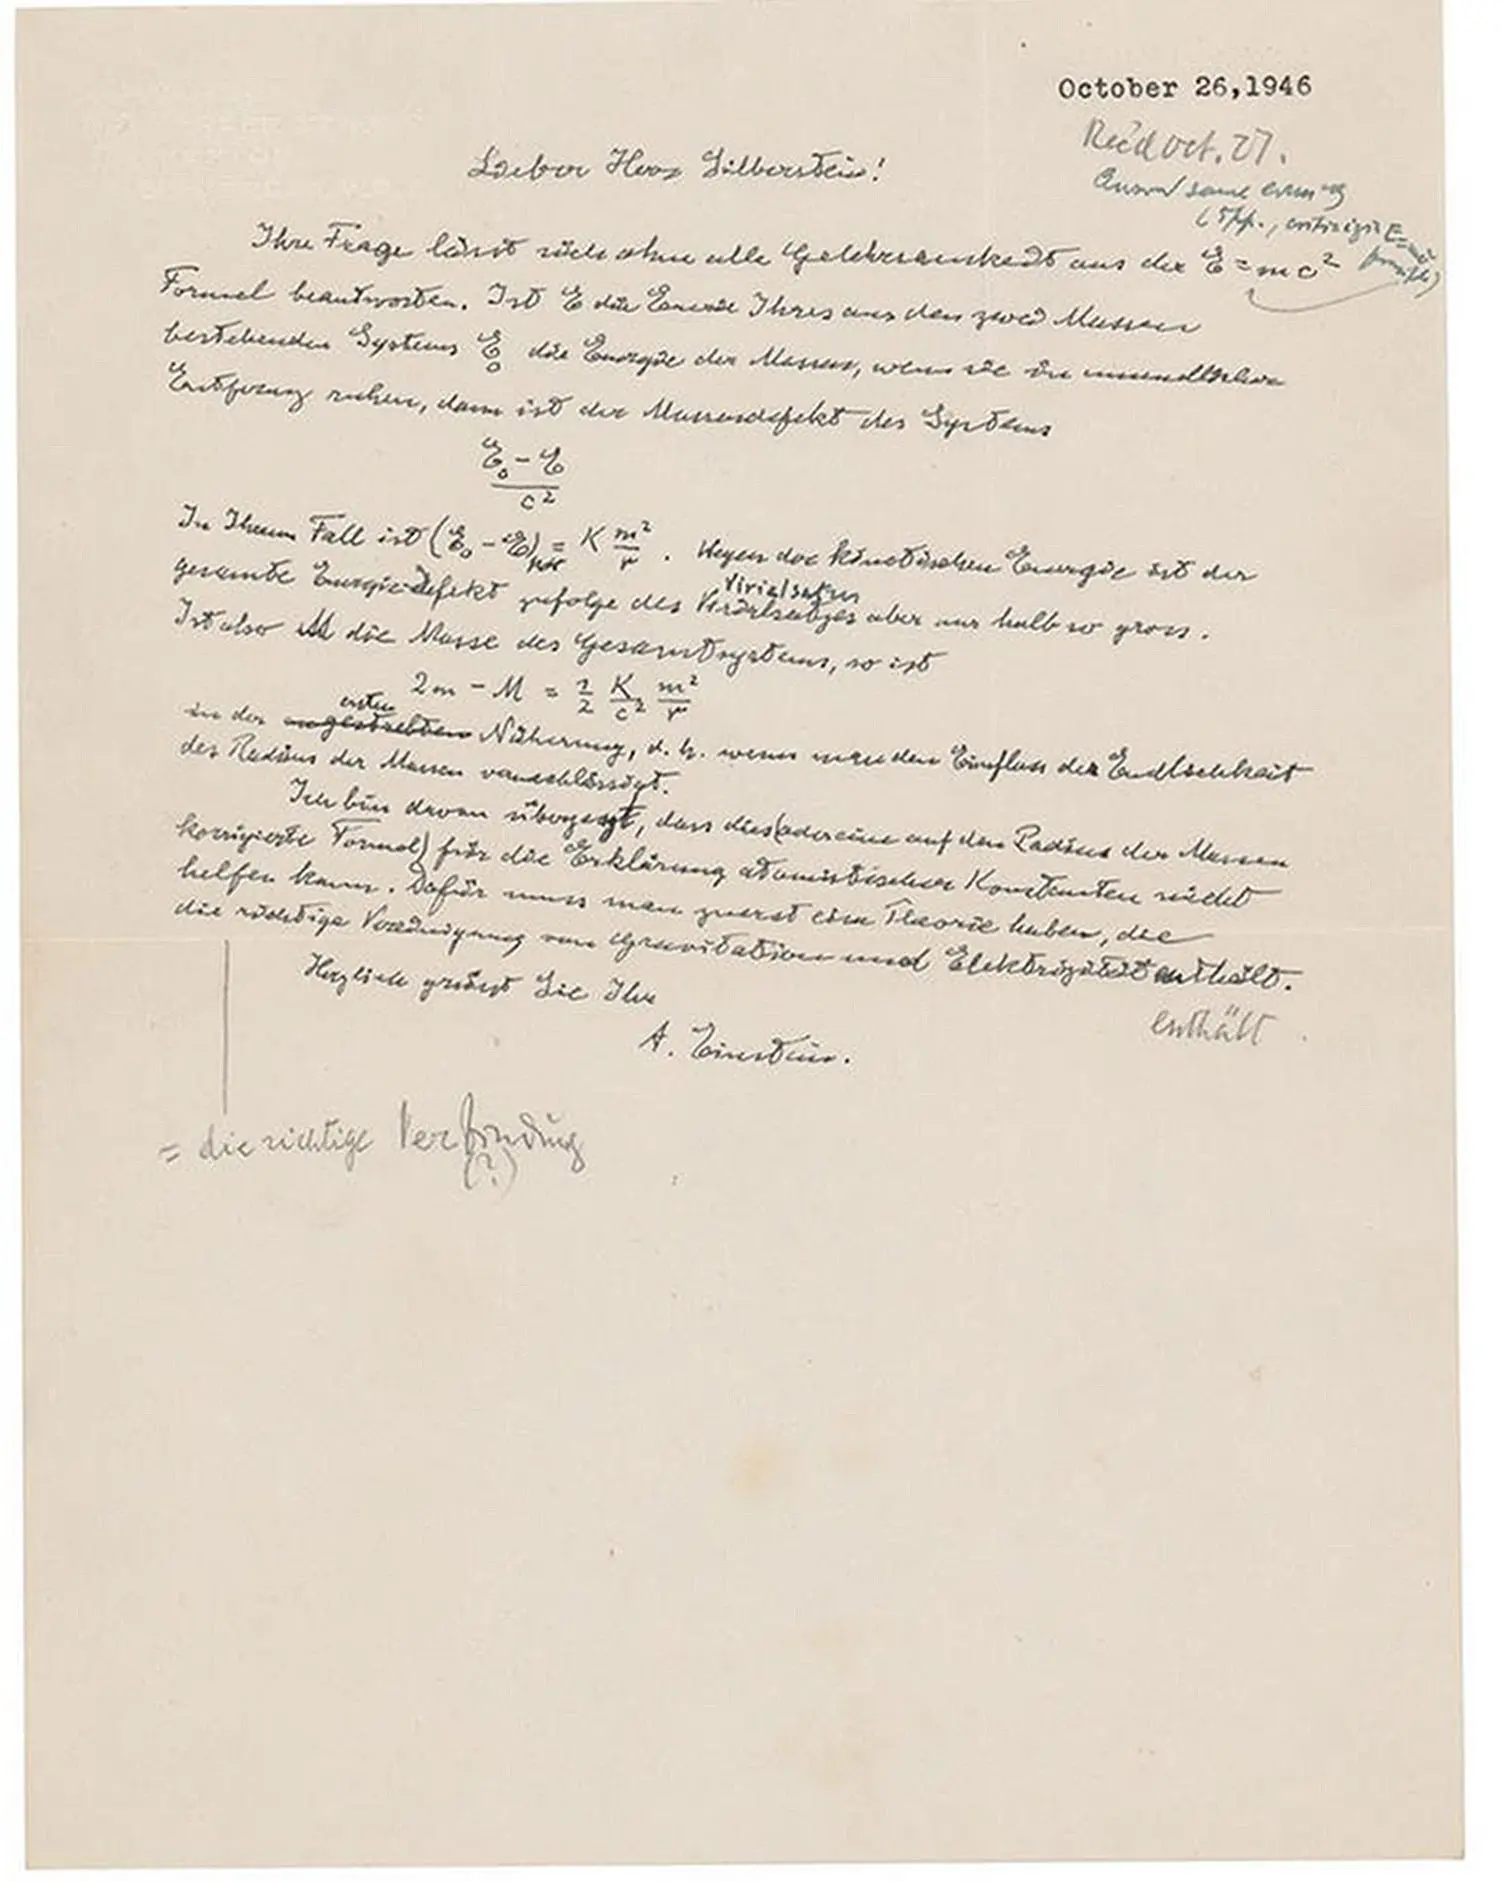 October 26,1946
Rec'd Oct. 27.
Answ'd same evening
(5pp., criticizing E=mc²
Lieber Herr Silberstein!
Ihre Frage lässt sich ohne alle Gelehrsamkeit aus der E = mc²
Formel beantworten. Ist E die Energie Ihres aus den zwei Massen
bestehenden Systems E₀ die Energie der Massen, wenn sie in unendlicher
Entfernung ruhen, dann ist der Massendefekt des Systems
E₀ - E
c²
In Ihrem Fall ist (E₀ - E) = K m²/r . Wegen der kinetischen Energie ist der
Virialsatzes
gesamte Energie-Defekt zufolge des Virialsatzes aber nur halb so gross.
Ist also M die Masse des Gesamtsystems, so ist
2m - M = 1/2 K/c² m²/r
ersten
in der angestrebten Näherung, d. h. wenn man den Einfluss der Endlichkeit
des Radius der Massen vernachlässigt.
Ich bin davon überzeugt, dass dies (oder eine auf den Radius der Massen
korrigierte Formel) für die Erklärung atomistischer Konstanten nicht
helfen kann. Dafür muss man zuerst eine Theorie haben, die
die richtige Vereinigung von Gravitation und Elektrizität enthält.
enthält
Herzlich grüsst Sie Ihr
A. Einstein.
= die richtige Verbindung
(?)